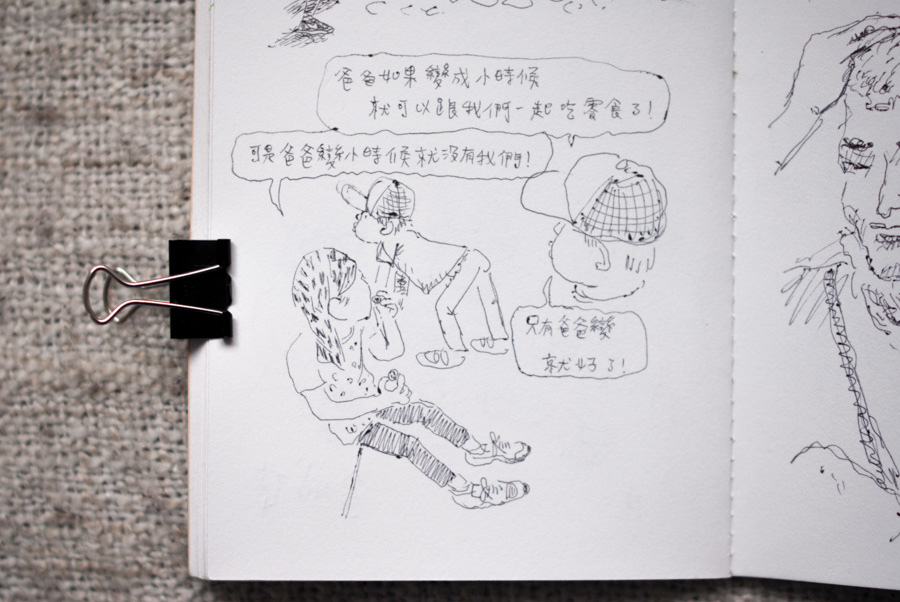 爸爸如果變成小時候
就可以跟我們一起吃零食了!
可是爸爸變小時候就沒有我們!
只有爸爸變
就好了!